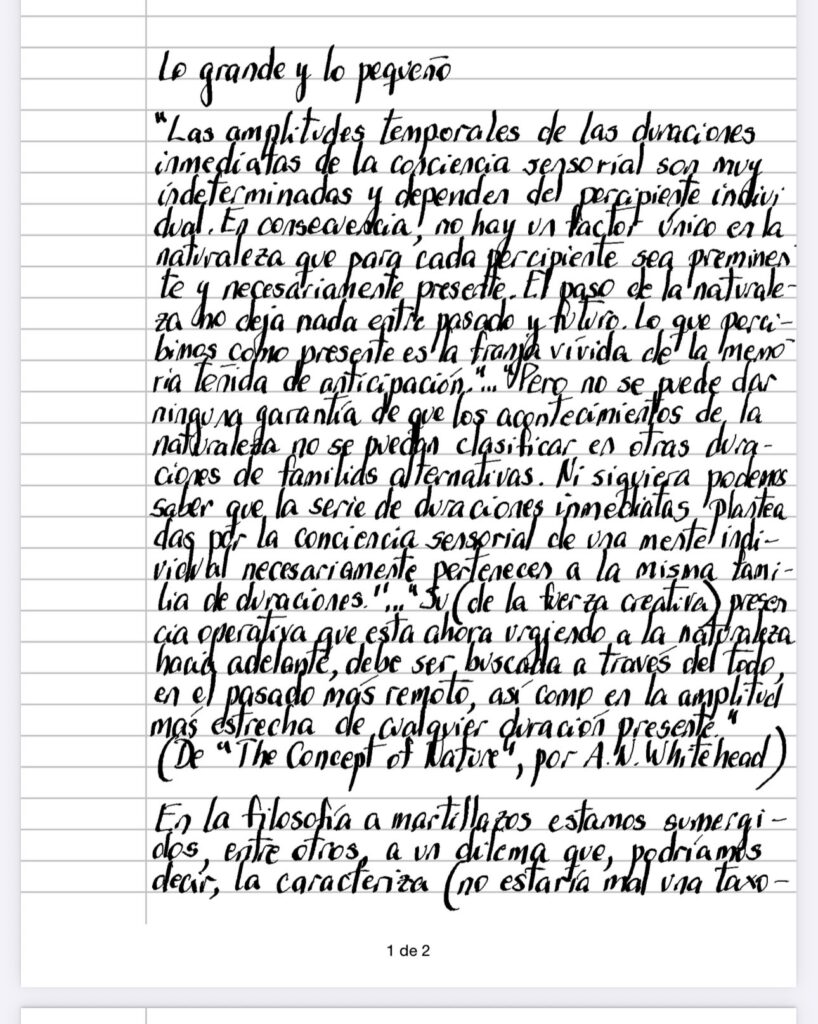 Lo grande y lo pequeño
"Las amplitudes temporales de las duraciones
inmediatas de la conciencia sensorial son muy
indeterminadas y dependen del percipiente indivi
dual. En consecuencia, no hay un factor único en la
naturaleza que para cada percipiente sea preminen
te y necesariamente presente. El paso de la naturale-
za no deja nada entre pasado y futuro. Lo que perci-
bimos como presente es la franja vívida de la memo
ria teñida de anticipación."..."Pero no se puede dar
ninguna garantía de que los acontecimientos de la
naturaleza no se puedan clasificar en otras dura-
ciones de familias alternativas. Ni siquiera podemos
saber que la serie de duraciones inmediatas plantea
das por la conciencia sensorial de una mente indi-
vidual necesariamente pertenecen a la misma fami-
lia de duraciones."..."Su (de la fuerza creativa) presen
cia operativa que esta ahora urgiendo a la naturaleza
hacia adelante, debe ser buscada a través del todo,
en el pasado más remoto, así como en la amplitud
más estrecha de cualquier duración presente."
(De "The Concept of Nature", por A.N. Whitehead)
En la filosofía a martillazos estamos sumergi-
dos, entre otros, a un dilema que, podríamos
decir, la caracteriza (no estaría mal una taxo-
1 de 2